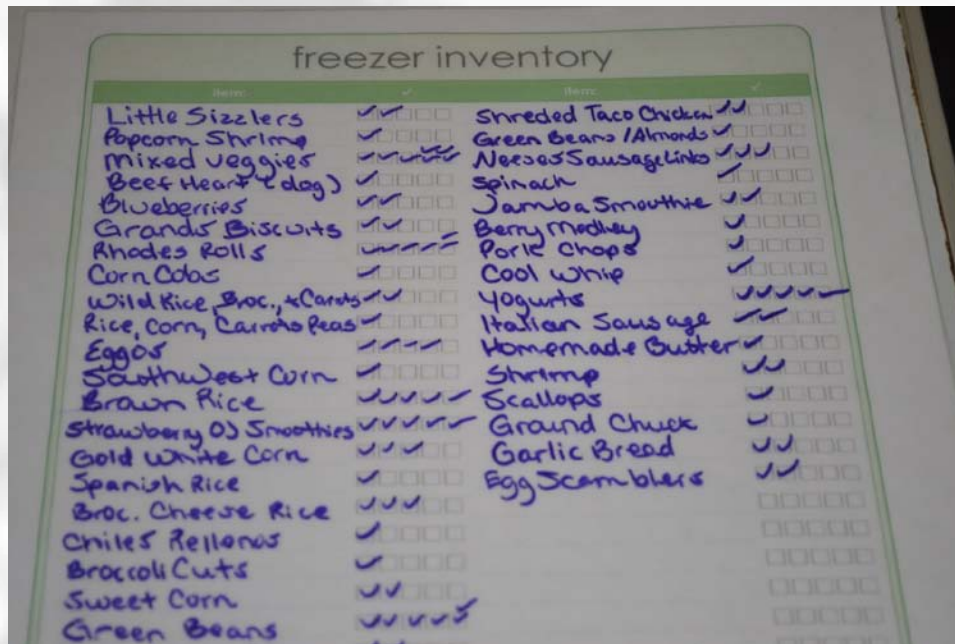 freezer inventory
item: ✓ item: ✓
Little Sizzlers
Popcorn Shrimp
mixed veggies
Beef Heart (dog)
Blueberries
Grands Biscuits
Rhodes Rolls
Corn Cobs
Wild Rice, Broc., + Carrots
Rice, Corn, Carrots Peas
Eggos
Southwest Corn
Brown Rice
Strawberry OJ Smoothies
Gold White Corn
Spanish Rice
Broc. Cheese Rice
Chiles Rellenos
Broccoli Cuts
Sweet Corn
Green Beans
Shreded Taco Chicken
Green Beans / Almonds
Neeses Sausage Links
Spinach
Jamba Smoothie
Berry Medley
Pork Chops
Cool Whip
Yogurts
Italian Sausage
Homemade Butter
Shrimp
Scallops
Ground Chuck
Garlic Bread
Egg Scamblers